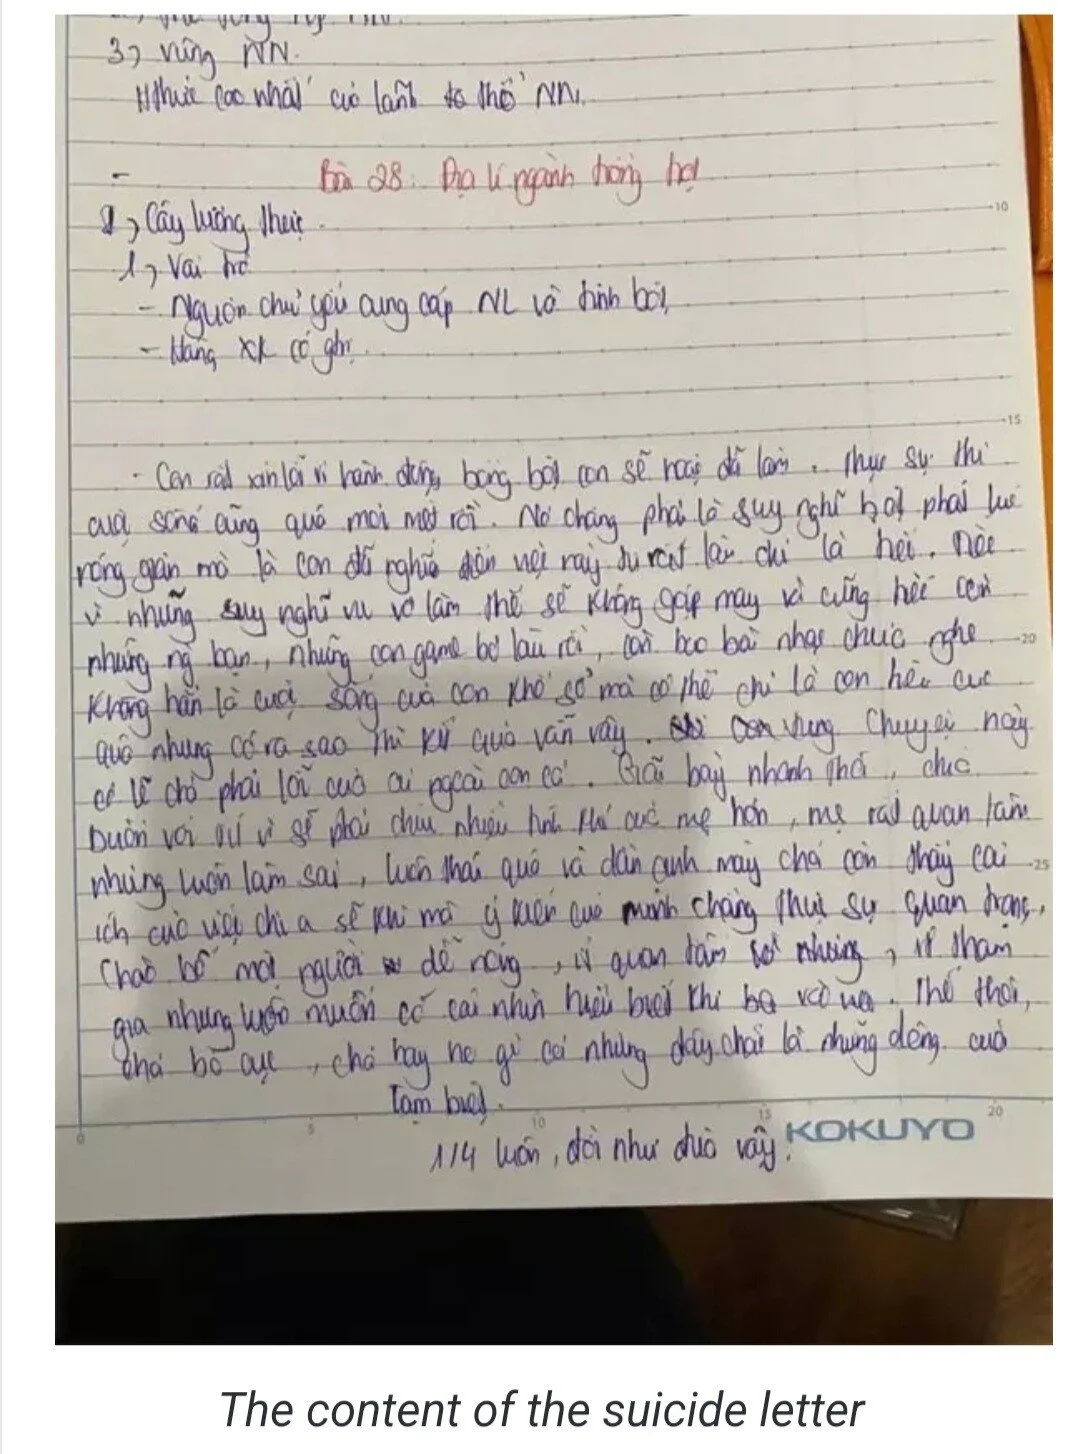 3, vùng NN.
Hthức cao nhất của lãnh thổ NN.
Bài 28: Địa lí ngành trồng trọt
I, Cây lương thực
1, Vai trò
- Nguồn chủ yếu cung cấp NL và tinh bột
- Hàng XK có gtrị.
- Con rất xin lỗi vì hành động bồng bột con sẽ hoặc đã làm. Thực sự thì
cuộc sống cũng quá mỏi mệt rồi. Nó chẳng phải là suy nghĩ bột phát lúc
nóng giận mà là con đã nghĩ đến việc này từ rất lâu chỉ là
vì những suy nghĩ vu vơ làm thế sẽ không gặp mẹ và cũng
những ng bạn, những con game bỏ lâu rồi, còn bao bài nhạc chưa nghe
không hẳn là cuộc sống của con khổ sở mà có thể chỉ là con
quá nhưng có ra sao thì kq vẫn vậy. con chuyện này
có lẽ chả phải lỗi của ai ngoài con cả. Giãi bày nhanh thế, chắc
buồn với vì sẽ phải chịu nhiều tính khí của mẹ hơn, mẹ rất quan tâm
nhưng luôn làm sai, luôn thái quá và dần anh mày chả còn thấy cái
ích của việc chia sẻ khi mà ý kiến của mình chẳng thực sự quan trọng,
Chào bố một người dễ nóng, ít quan tâm nhưng, ít tham
gia nhưng luôn muốn có cái nhìn hiểu biết khi Thế thôi,
chả bố cục, chả hay ho gì cả nhưng đây chắc là những dòng cuối
Tạm biệt.
1/4 luôn, đời như đùa vậy!
10
15
20
25
0
5
10
15
20
KOKUYO
The content of the suicide letter